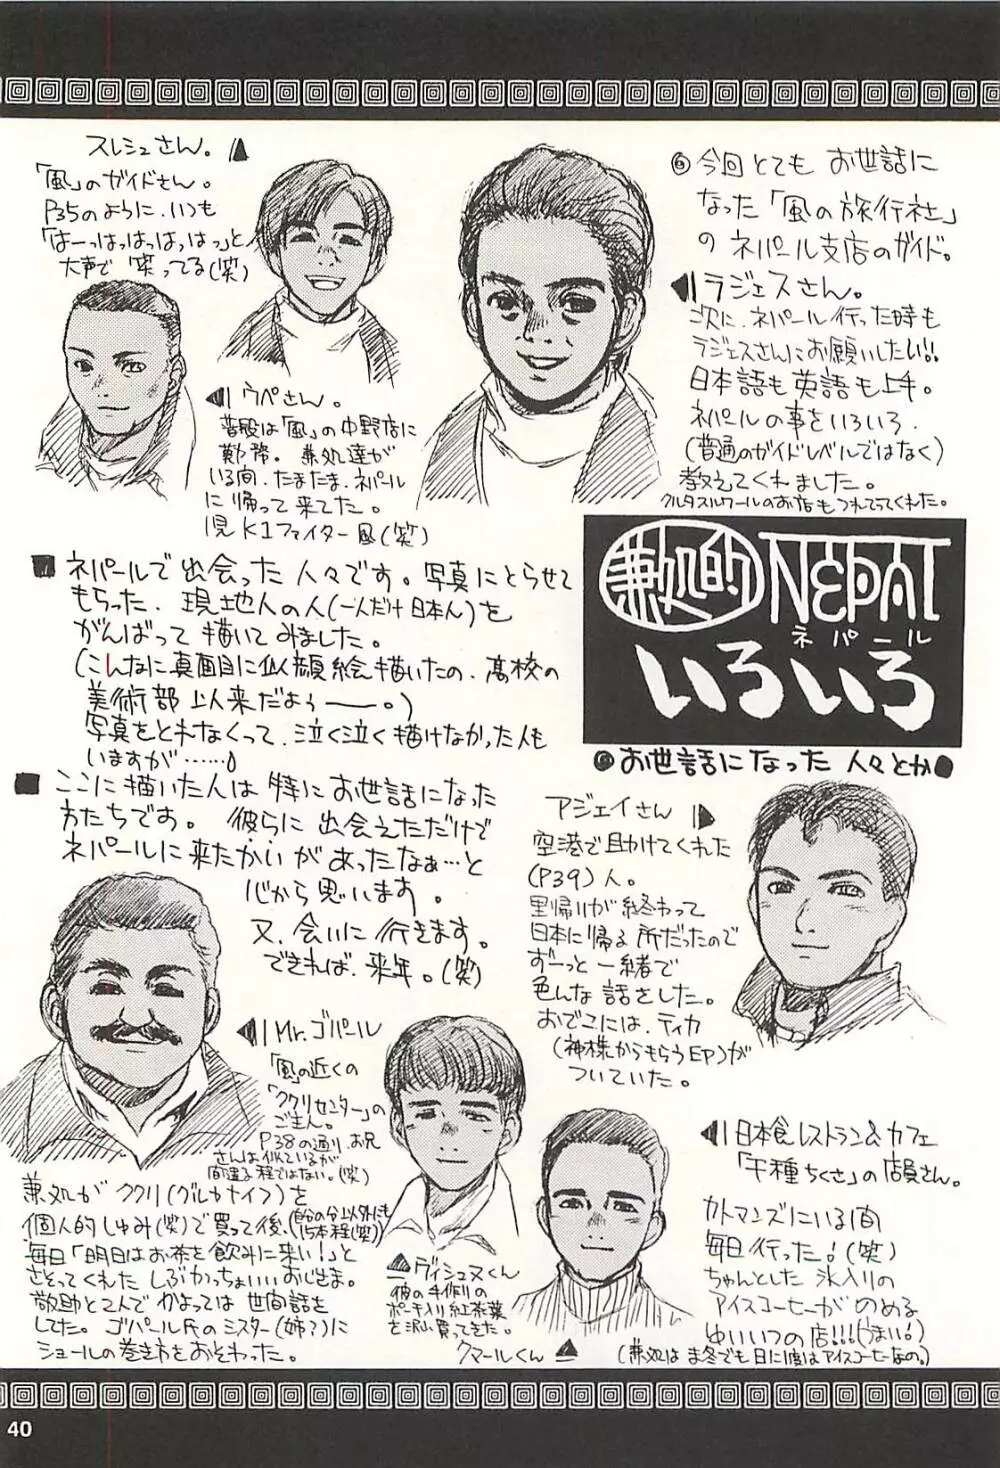 ◎今回とても お世話に
なった「風の旅行社」
の ネパール支店のガイド。
ラジェスさん。
次に、ネパール行った時も
ラジェスさんにお願いしたい!!
日本語も英語も上手。
ネパールの事をいろいろ、
(普通のガイドレベルではなく)
教えてくれました。
クルタスルワールのお店もつれてってくれた。
スレシュさん。
「風」のガイドさん。
P35のように、いつも
「はーっはっはっはっはっ」と
大声で 笑ってる(笑)
ウペさん。
普段は「風」の中野店に
勤務。兼処達が
いる間、たまたま、ネパール
に帰って来てた。
K1ファイター風(笑)
兼処的 NEPAL
ネパール
いろいろ
お世話になった 人々とか
■ ネパールで 出会った 人々です。写真にとらせて
もらった、現地人の人(一人だけ日本人)を
がんばって 描いてみました。
(こんなに真面目に似顔絵描いたの、高校の
美術部 以来だよぅ——。)
写真をとれなくって、泣く泣く描けなかった人も
いますが……
■ ここに描いた人は 特に お世話になった
方たちです。彼らに 出会えただけで
ネパールに来たかいが あったなぁ…と
心から 思います。
又、会いに 行きます。
できれば、来年。(笑)
アジェイさん
空港で助けてくれた
(P39)人。
里帰りが 終わって
日本に帰る 所だったので
ずーっと 一緒で
色んな 話をした。
おでこには、ティカ
(神様からもらうEP)が
ついていた。
Mr.ゴパール
「風」の近くの
「ククリセンター」の
ご主人。
P38の通り、お兄
さんは似ているが
間違える程ではない。(笑)
兼処が ククリ(グルカナイフ)を
個人的しゅみ(笑)で買って後、
15本程(笑)
毎日「明日はお茶を飲みに来い!」と
さそってくれた しぶかっちょいいおじさま。
敬助と2人で かよっては 世間話を
してた。ゴパール氏の ミスター(姉?)に
ショールの巻き方を おそわった。
ヴィシュヌくん
彼の手作りの
ポーチ入り紅茶葉
を沢山買ってきた。
クマールくん
日本食レストラン&カフェ
「千種ちくさ」の 店員さん。
カトマンズにいる間
毎日 行った!(笑)
ちゃんとした 氷入りの
アイスコーヒーが のめる
ゆいいつの店!!!(うまい!)
(兼処は ま冬でも 日に1度はアイスコーヒーなの。)
40